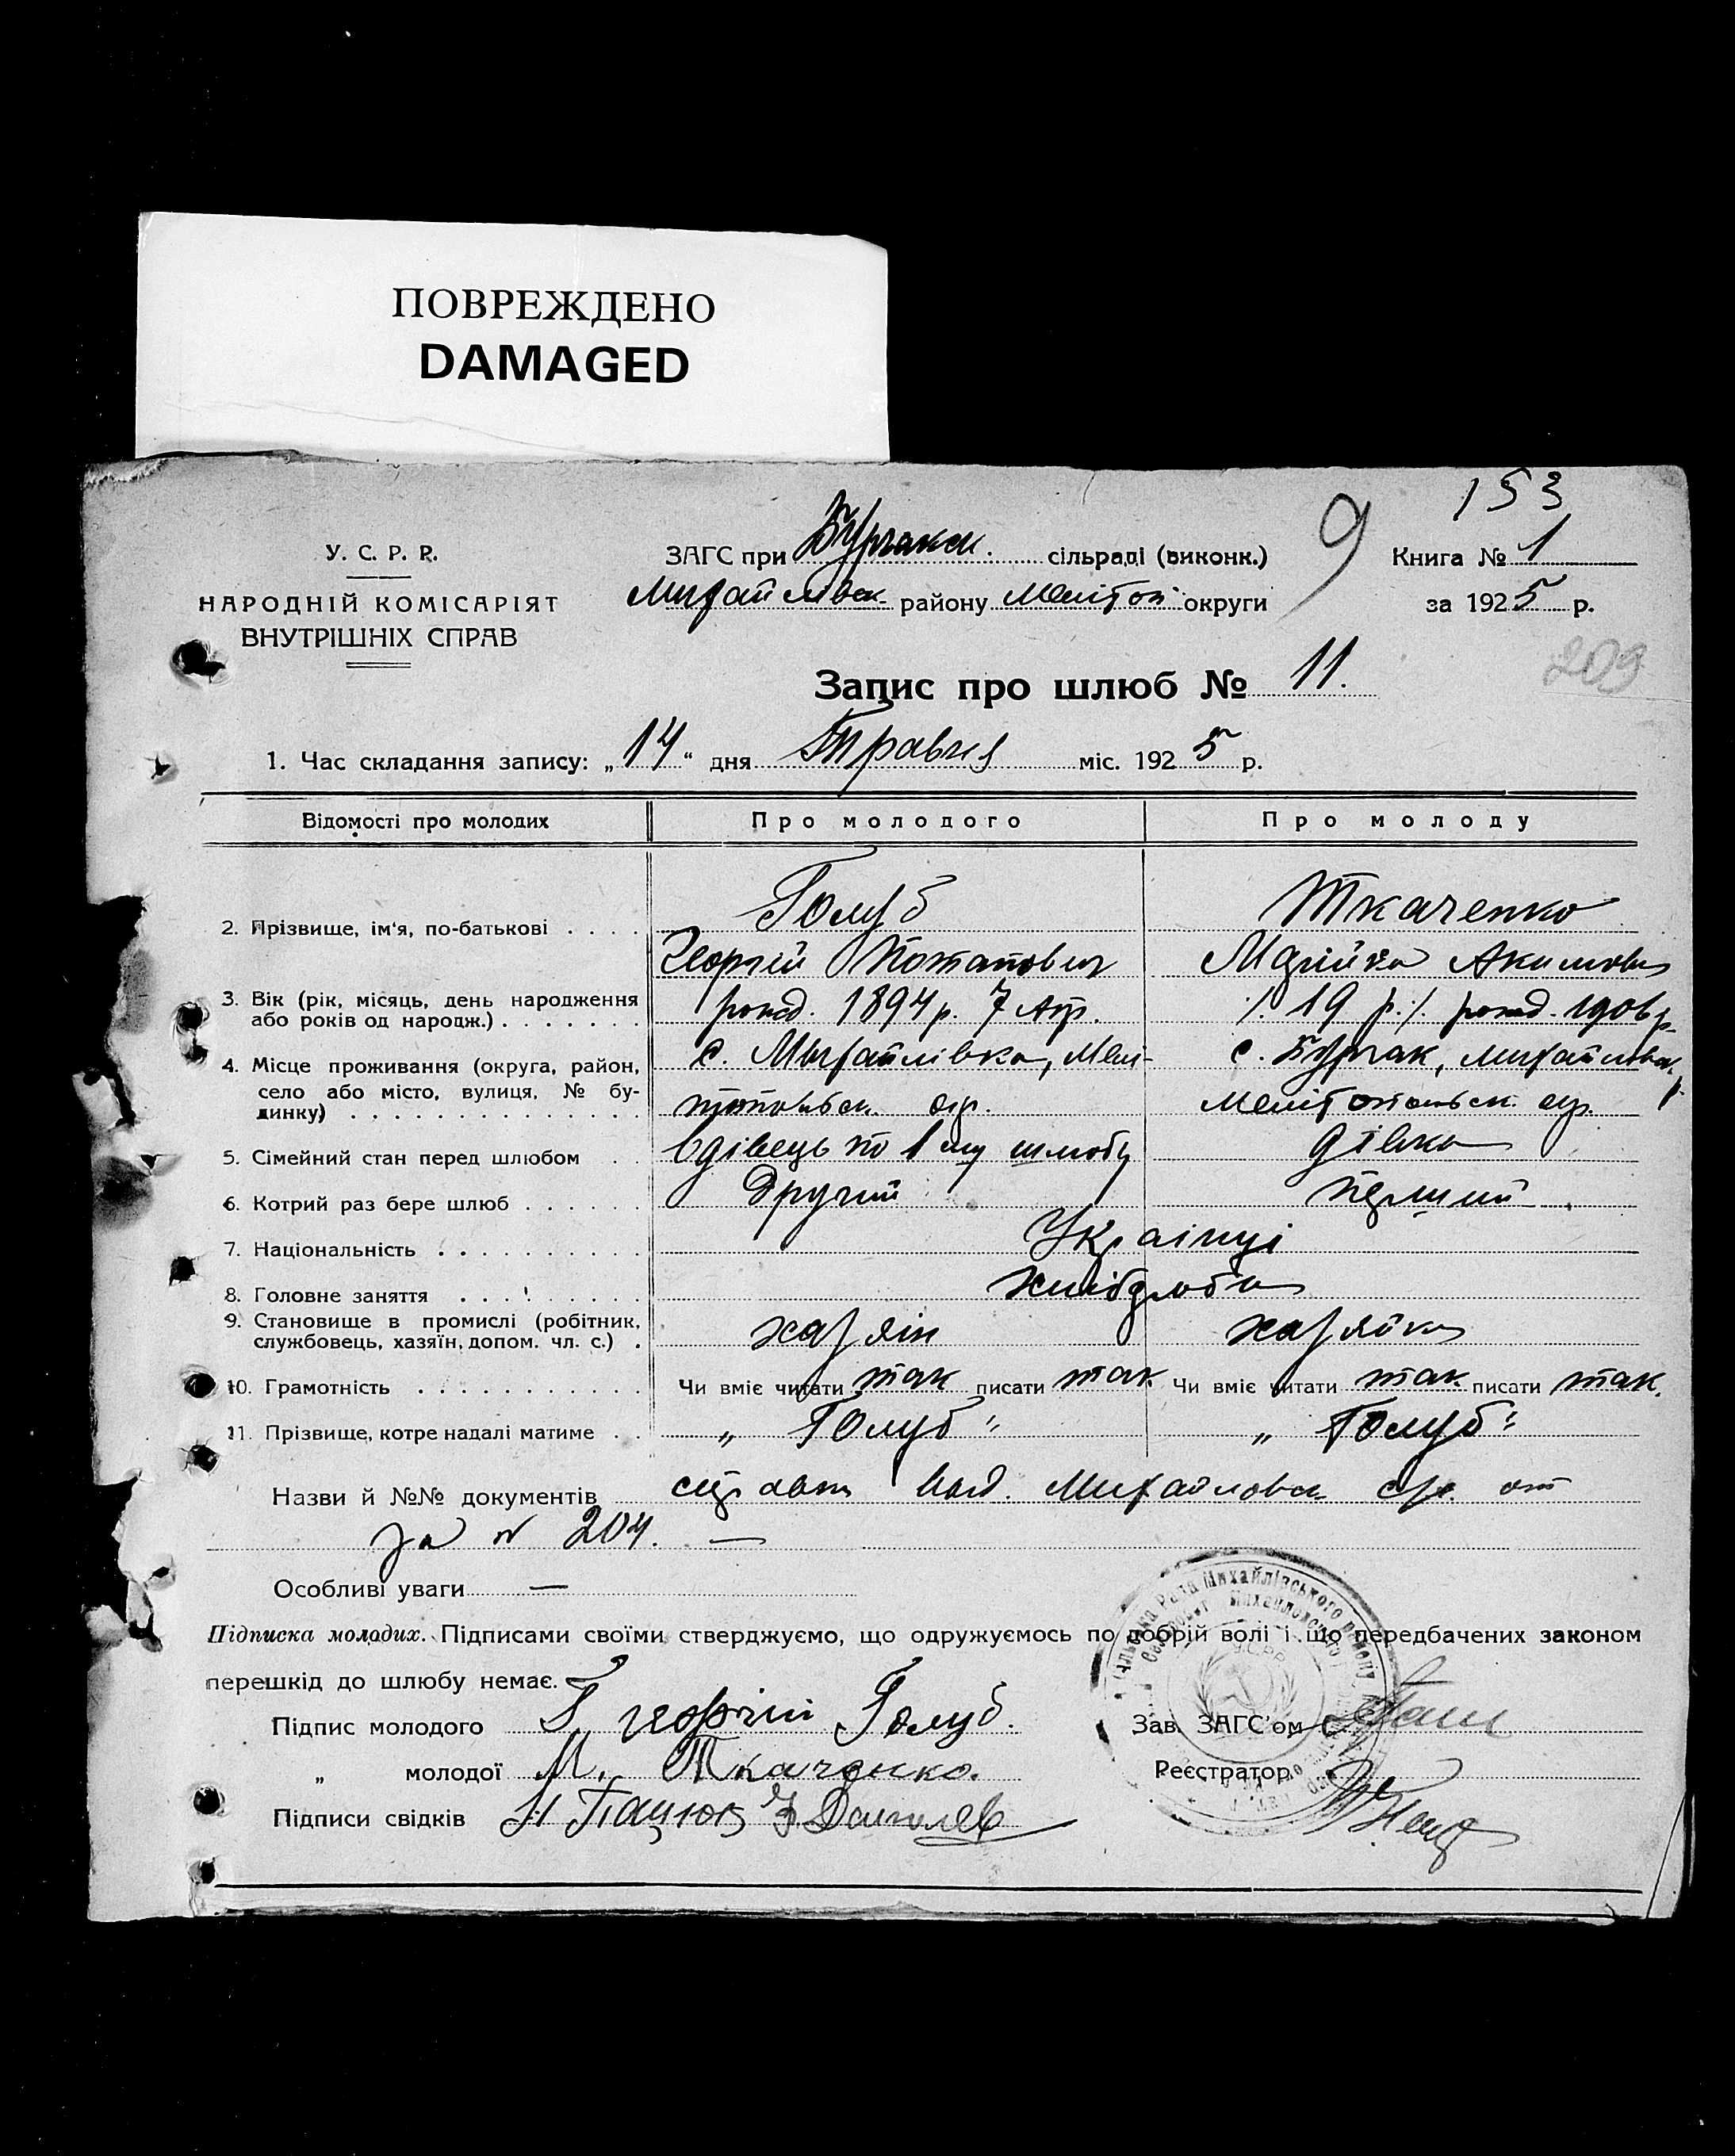 ПОВРЕЖДЕНО
DAMAGED
153
У. С. Р. Р.
НАРОДНІЙ КОМІСАРІЯТ
ВНУТРІШНІХ СПРАВ
ЗАГС при сільраді (виконк.)
Михайлівск. району Мелітоп. округи
9
Книга № 1
за 1925 р.
209
Запис про шлюб № 11.
1. Час складання запису: „14" дня Травня міс. 1925 р.
Відомості про молодих Про молодого Про молоду
2. Прізвище, ім'я, по-батькові . . . . Голуб Ткаченко
Георгій Потапович Марійка Акимовн
3. Вік (рік, місяць, день народження
або років од народж.) . . . . . . . рожд. 1894 р. 7 Апр. /. 19 р. /. рожд. 1906 р.
4. Місце проживання (округа, район,
село або місто, вулиця, № бу-
динку) . . . . . . . . . . . . с. Михайлівка, Мелі- с. Бурчак, Михайлівск. р.
топольск. окр. Мелітопольск. окр.
5. Сімейний стан перед шлюбом . . вдівець по 1му шлюбу дівка
6. Котрий раз бере шлюб . . . . . . Другий перший
7. Національність . . . . . . . . . . Українці
8. Головне заняття . . . . . . . . . хлібороби
9. Становище в промислі (робітник,
службовець, хазяїн, допом. чл. с.) . хазяїн хазяйка
10. Грамотність . . . . . . . . . . . Чи вміє читати так писати так Чи вміє читати так писати так.
11. Прізвище, котре надалі матиме . . „Голуб" „Голуб"
Назви й №№ документів вид. Михайловск. от
за № 204. —
Особливі уваги —
Підписка молодих. Підписами своїми стверджуємо, що одружуємось по добрій волі і що передбачених законом
перешкід до шлюбу немає.
Підпис молодого Г. Георгій Голуб.
„ молодої М. Ткаченко.
Підписи свідків
Зав. ЗАГС'ом
Реєстратор
Рада Михайлівського району
УСРР